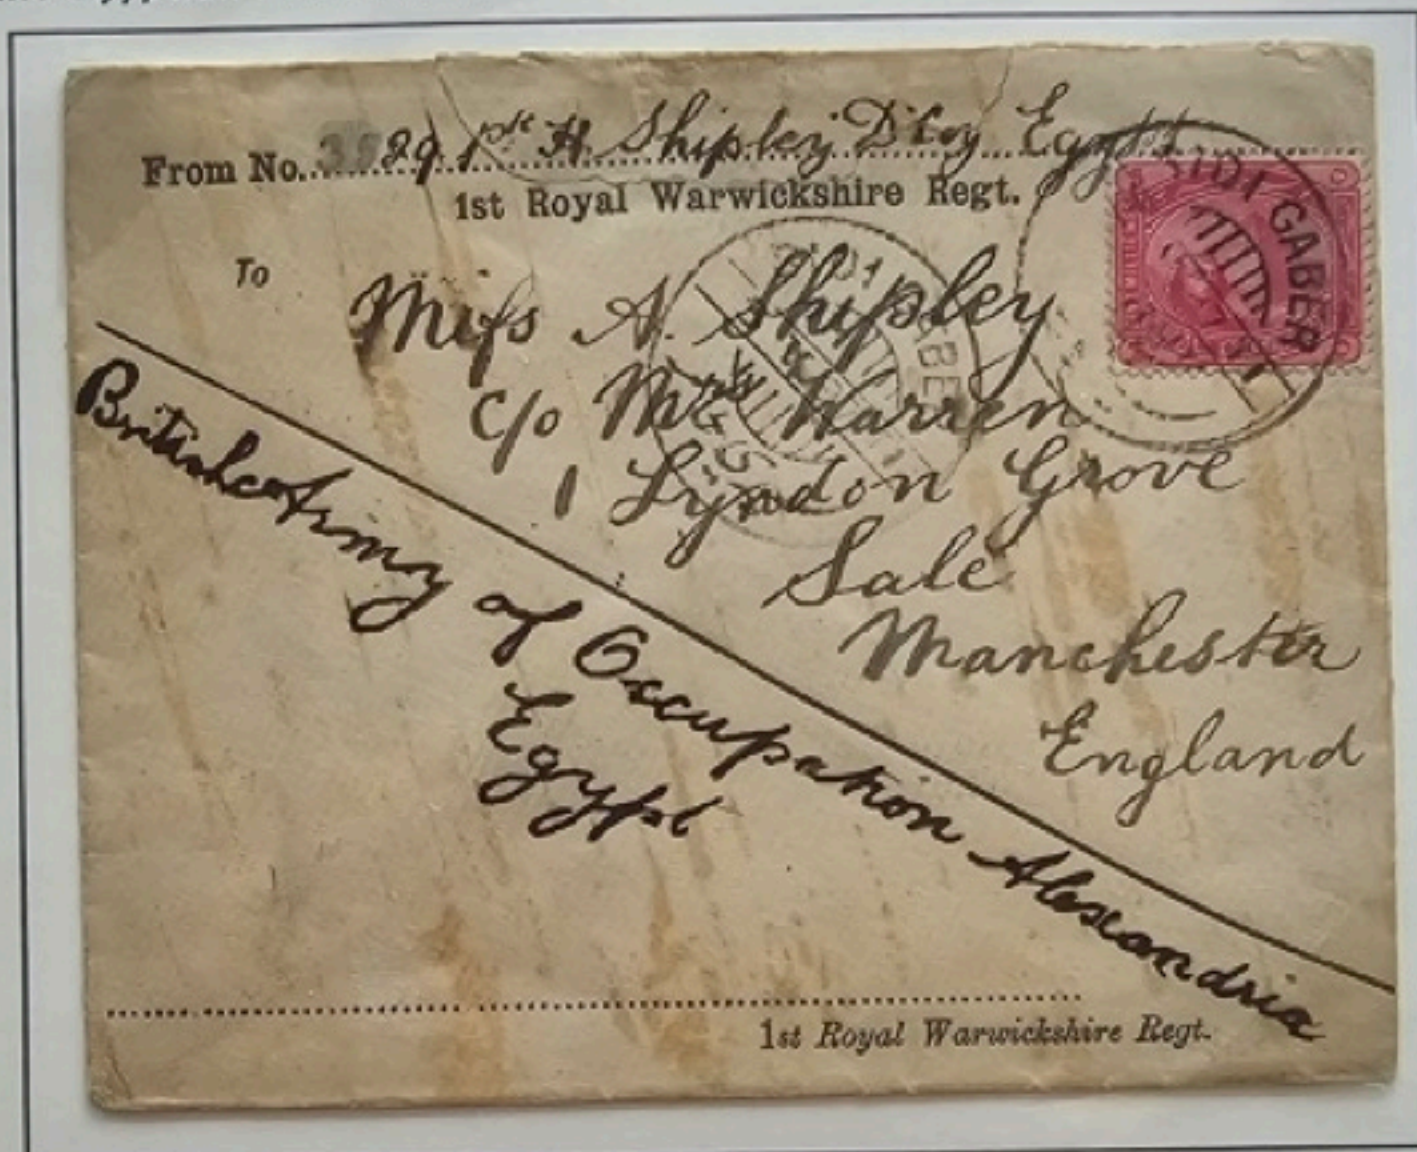 From No. 29 Pte H. Shipley D Coy Egypt
1st Royal Warwickshire Regt.
SIDI GABER
To
Miss A. Shipley
C/o Mrs Warren
1 Lyndon Grove
Sale
Manchester
England
British Army of Occupation Alexandria
Egypt
1st Royal Warwickshire Regt.